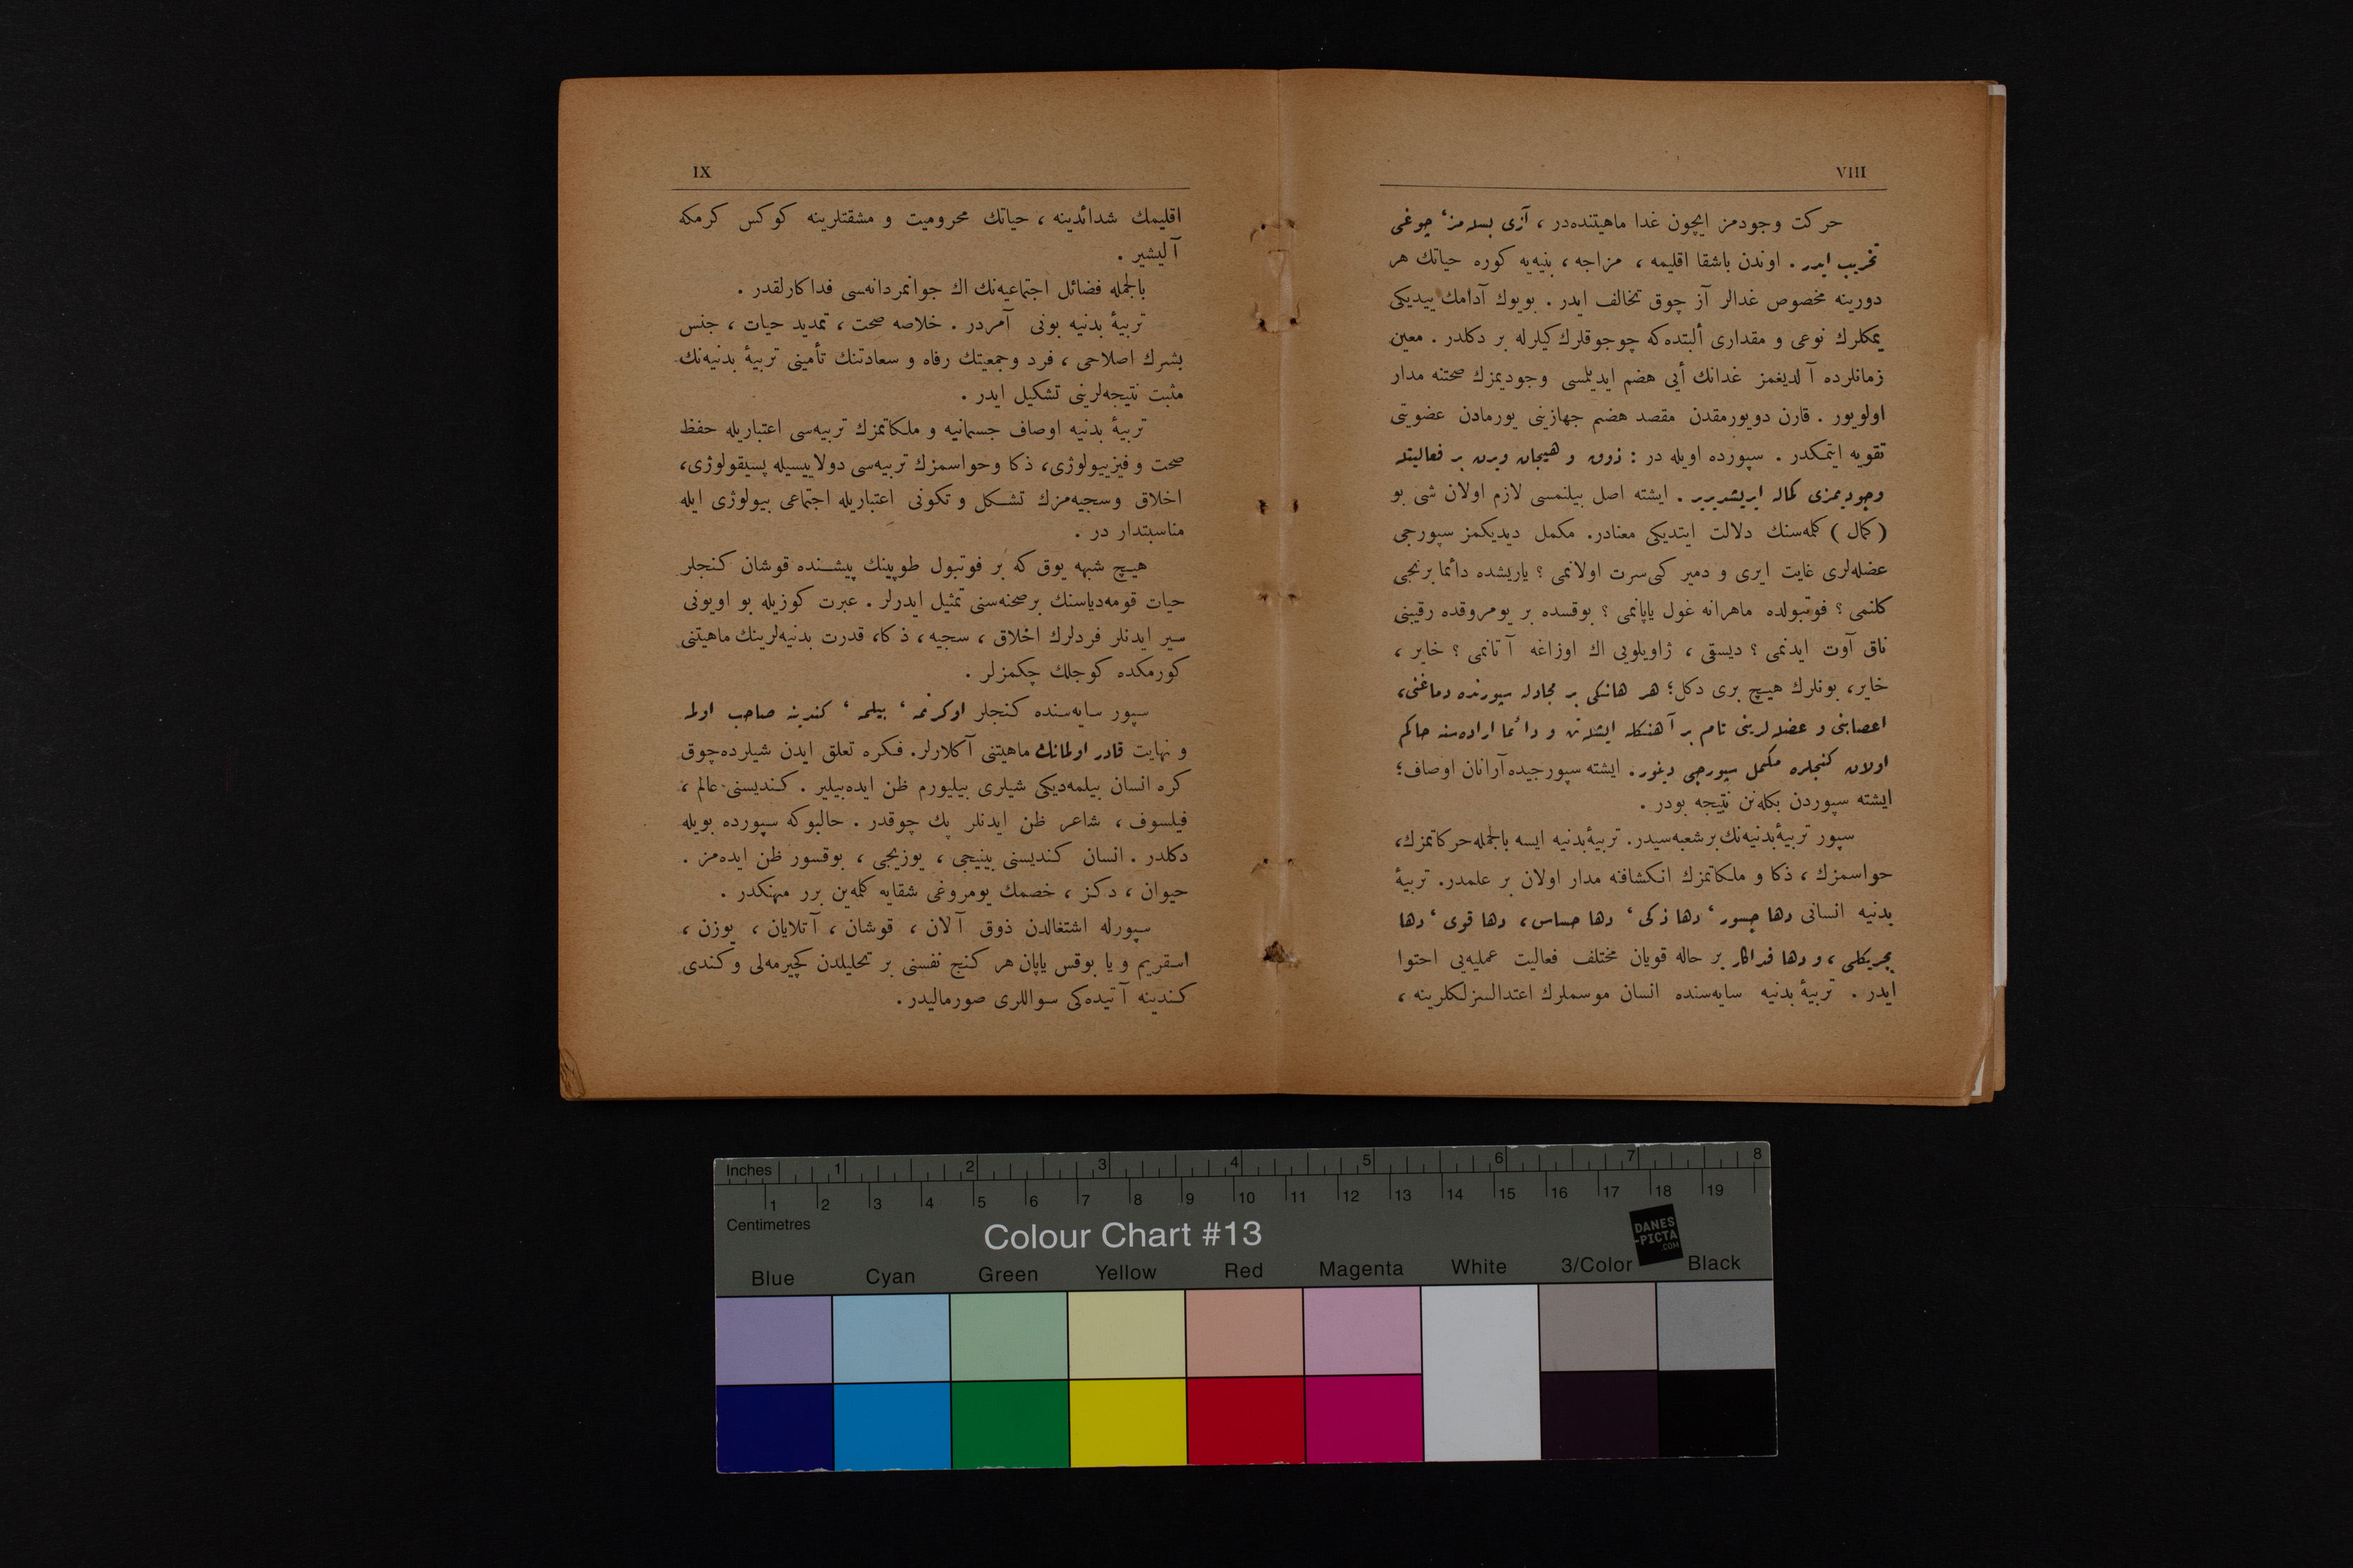 VIII
حركت وجودمز ایچون غدا ماهیتنده‌در ، آزی بسله‌مز ، چوغی
تخریب ایدر . اوندن باشقا اقلیمه ، مزاجه ، بنیه‌یه كوره حیاتك هر
دورینه مخصوص غدالر آز چوق تخالف ایدر . بویوك آدامك ییدیكی
یمكلرك نوعی و مقداری ألبتده‌كه چوجوقلرك كیلرله بر دكلدر . معین
زمانلرده آلدیغمز غدانك أیی هضم ایدیلمسی وجودیمزك صحتنه مدار
اولویور . قارن دویورمقدن مقصد هضم جهازینی یورمادن عضویتی
تقویه ایتمكدر . سپورده اویله در : ذوق و هیجان ویرن بر فعالیتله
وجودیمزی كماله ایریشدیریر . ایشته اصل بیلنمسی لازم اولان شی بو
( كمال ) كلمه‌سنك دلالت ایتدیكی معنادر. مكمل دیدیكمز سپورجی
عضله‌لری غایت ایری و دمیر كبی سرت اولانمی ؟ یاریشده دائما برنجی
كلنمی ؟ فوتبولده ماهرانه غول یاپانمی ؟ بوقسده بر یومروقده رقیبنی
ناق آوت ایدنمی ؟ دیسقی ، ژاویلویی اك اوزاغه آتانمی ؟ خایر ،
خایر، بونلرك هیچ بری دكل؛ هر هانكی بر مجادله سپورنده دماغنی،
اعصابنی و عضله‌لرینی تام بر آهنكله ایشله‌تن و دائما اراده‌سنه حاكم
اولان كنجلره مكمل سپورجی دینور. ایشته سپورجیده آرانان اوصاف؛
ایشته سپوردن بكله‌نن نتیجه بودر .
سپور تربیهٔ بدنیه‌نك بر شعبه‌سیدر. تربیهٔ بدنیه ایسه بالجمله حركاتمزك،
حواسمزك ، ذكا و ملكاتمزك انكشافنه مدار اولان بر علمدر. تربیهٔ
بدنیه انسانی دها جسور ، دها ذكی ، دها حساس ، دها قوی ، دها
چریكلی ، و دها فداكار بر حاله قویان مختلف فعالیت عملیه‌یی احتوا
ایدر . تربیهٔ بدنیه سایه‌سنده انسان موسملرك اعتدالسزلكلرینه ،
IX
اقلیمك شدائدینه ، حیاتك محرومیت و مشقتلرینه كوكس كرمكه
آلیشیر .
بالجمله فضائل اجتماعیه‌نك اك جوانمردانه‌سی فداكارلقدر .
تربیهٔ بدنیه بونی آمردر . خلاصه صحت ، تمدید حیات ، جنس
بشرك اصلاحی ، فرد وجمعیتك رفاه و سعادتنك تأمینی تربیهٔ بدنیه‌نك
مثبت نتیجه‌لرینی تشكیل ایدر .
تربیهٔ بدنیه اوصاف جسمانیه و ملكاتمزك تربیه‌سی اعتباریله حفظ
صحت و فیزییولوژی، ذكا وحواسمزك تربیه‌سی دولاییسیله پسیقولوژی،
اخلاق وسجیه‌مزك تشكل و تكونی اعتباریله اجتماعی بیولوژی ایله
مناسبتدار در .
هیچ شبهه یوق كه بر فوتبول طوپینك پیشنده قوشان كنجلر
حیات قومه‌دیاسنك بر صحنه‌سنی تمثیل ایدرلر . عبرت كوزیله بو اویونی
سیر ایدنلر فردلرك اخلاق ، سجیه ، ذكا، قدرت بدنیه‌لرینك ماهیتنی
كورمكده كوجلك چكمزلر .
سپور سایه‌سنده كنجلر اوكرنمه ، بیلمه ، كندینه صاحب اولمه
و نهایت قادر اولمانك ماهیتنی آكلارلر. فكره تعلق ایدن شیلرده چوق
كره انسان بیلمه‌دیكی شیلری بیلیورم ظن ایده‌بیلیر . كندیسنی عالم ،
فیلسوف ، شاعر ظن ایدنلر پك چوقدر . حالبوكه سپورده بویله
دكلدر . انسان كندیسنی بینیجی ، یوزیجی ، بوقسور ظن ایده‌مز .
حیوان ، دكز ، خصمك یومروغی شقایه كلمه‌ین برر مهنكدر .
سپورله اشتغالدن ذوق آلان ، قوشان ، آتلایان ، یوزن ،
اسقریم و یا بوقس یاپان هر كنج نفسنی بر تحلیلدن كچیرمه‌لی و كندی
كندینه آتیده‌كی سواللری صورمالیدر.
Inches 1 2 3 4 5 6 7 8
1 2 3 4 5 6 7 8 9 10 11 12 13 14 15 16 17 18 19
Centimetres
Colour Chart #13
DANES
-PICTA
.COM
Blue Cyan Green Yellow Red Magenta White 3/Color Black